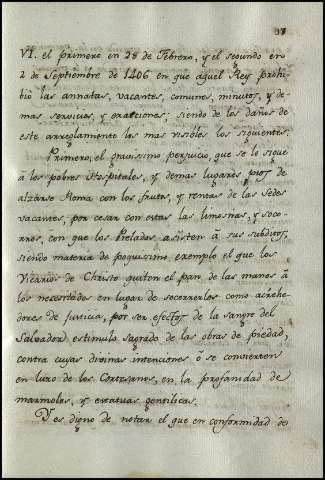 VI. el primero en 28 de Febrero, y el segundo en
2 de Septiembre de 1406 en que aquel Rey prohi-
bió las annatas, vacantes, comunes, minutos, y de
mas servicios, y exacciones; siendo de los daños de
este arreglamento los mas visibles los siguientes.
Primero, el gravissimo perjuicio, que se le sigue
à los pobres Hospitales, y demas lugares pios de
alzarse Roma con los frutos, y rentas de las Sedes
vacantes, por cesar con estas las limosnas, y soco-
rros, con que los Prelados asisten à sus subditos,
siendo materia de poquissimo exemplo el que los
Vicarios de Christo quiten el pan de las manos à
los necesitados en lugar de socorrerlos como acrehe-
dores de justicia, por ser efectos de la sangre del
Salvador, estimulo sagrado de las obras de piedad,
contra cuyas divinas intenciones ò se convierten
en luxo de los Cortesanos, en la profanidad de
marmoles, y estatuas gentilicas.
Y es digno de notar el que en conformidad de